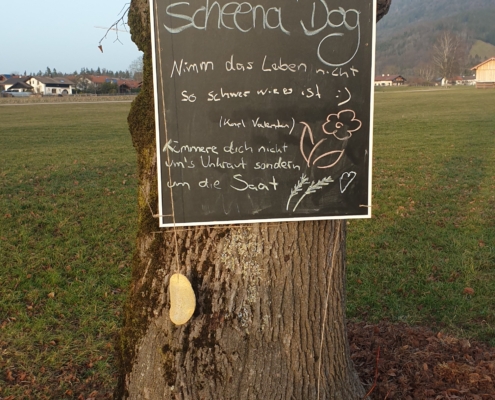 Scheena Dog
Nimm das Leben nicht
so schwer wie es ist :)
(Karl Valentin)
Kümmere dich nicht
um's Unkraut sondern
um die Saat